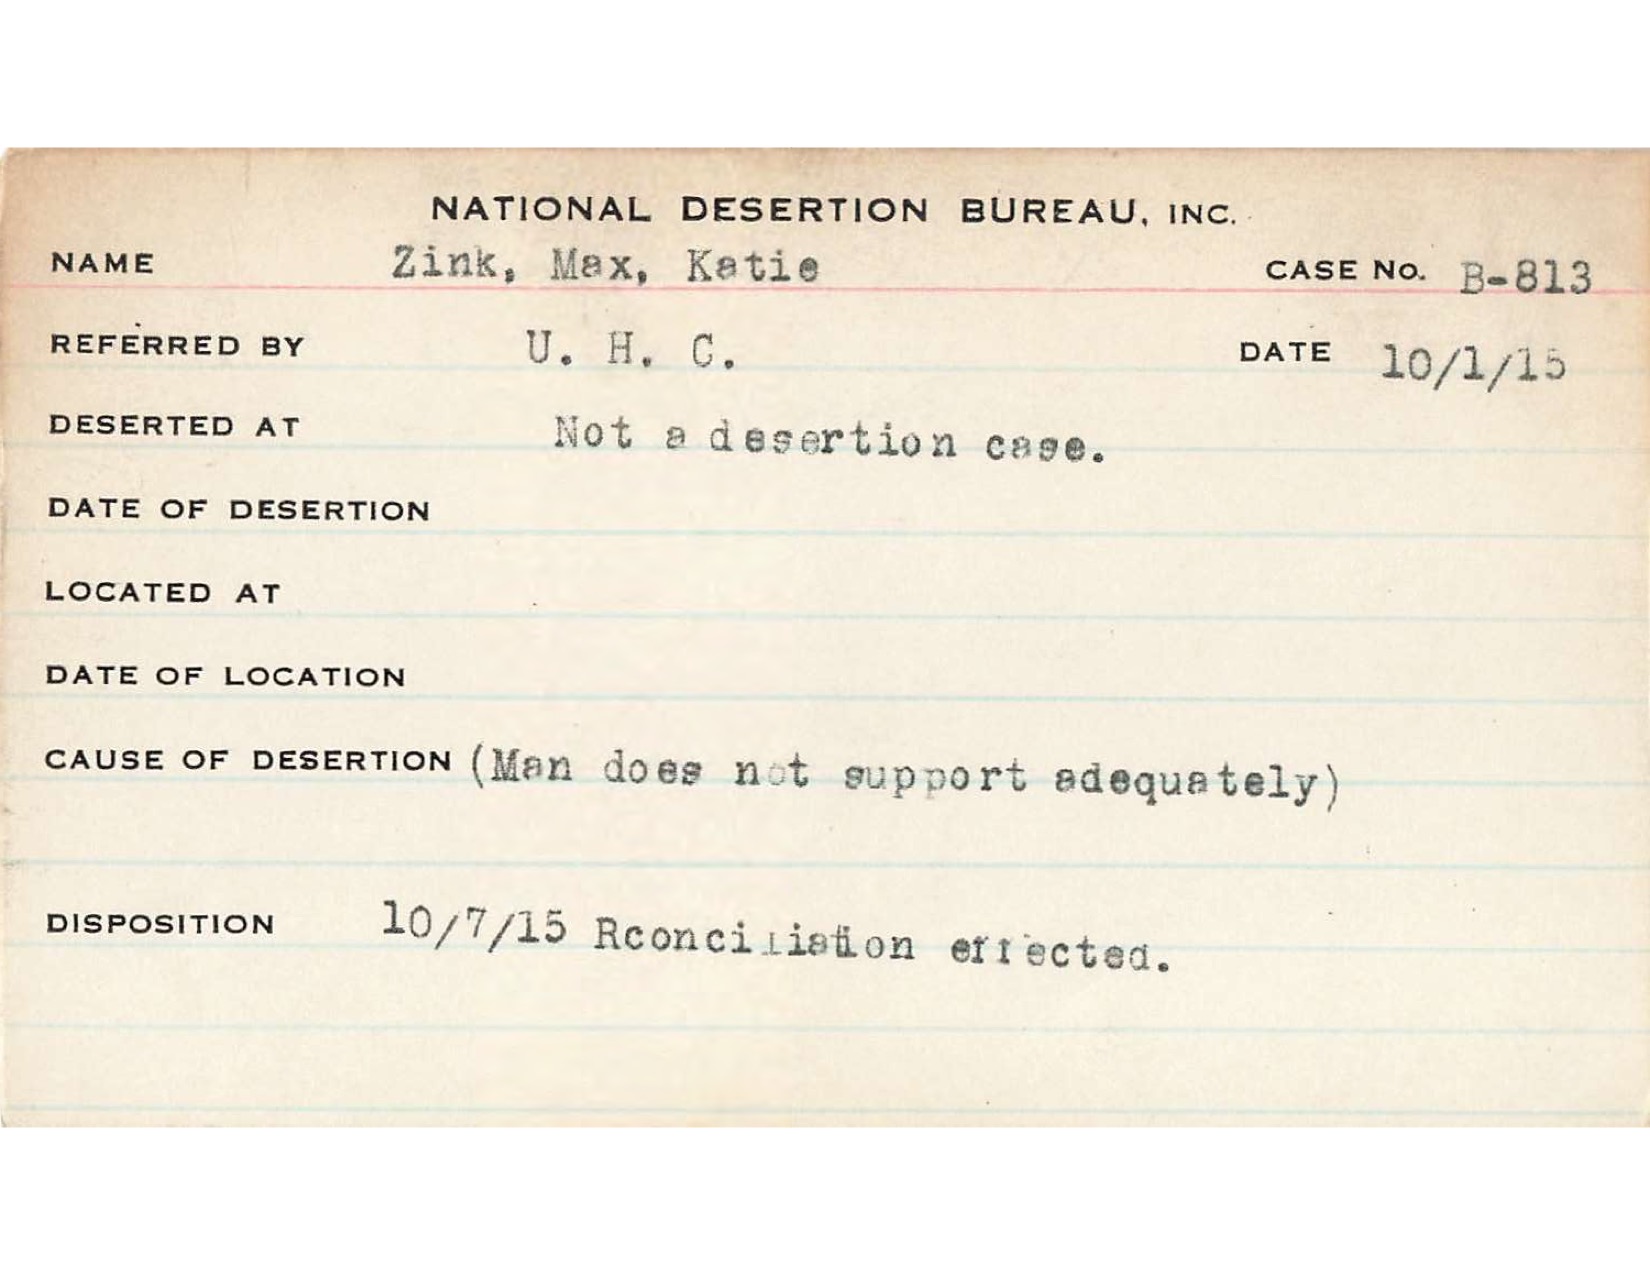 NATIONAL DESERTION BUREAU, INC.
NAME Zink, Max, Katie CASE No. B-813
REFERRED BY U. H. C. DATE 10/1/15
DESERTED AT Not a desertion case.
DATE OF DESERTION
LOCATED AT
DATE OF LOCATION
CAUSE OF DESERTION (Man does not support adequately)
DISPOSITION 10/7/15 Rconciliation effected.